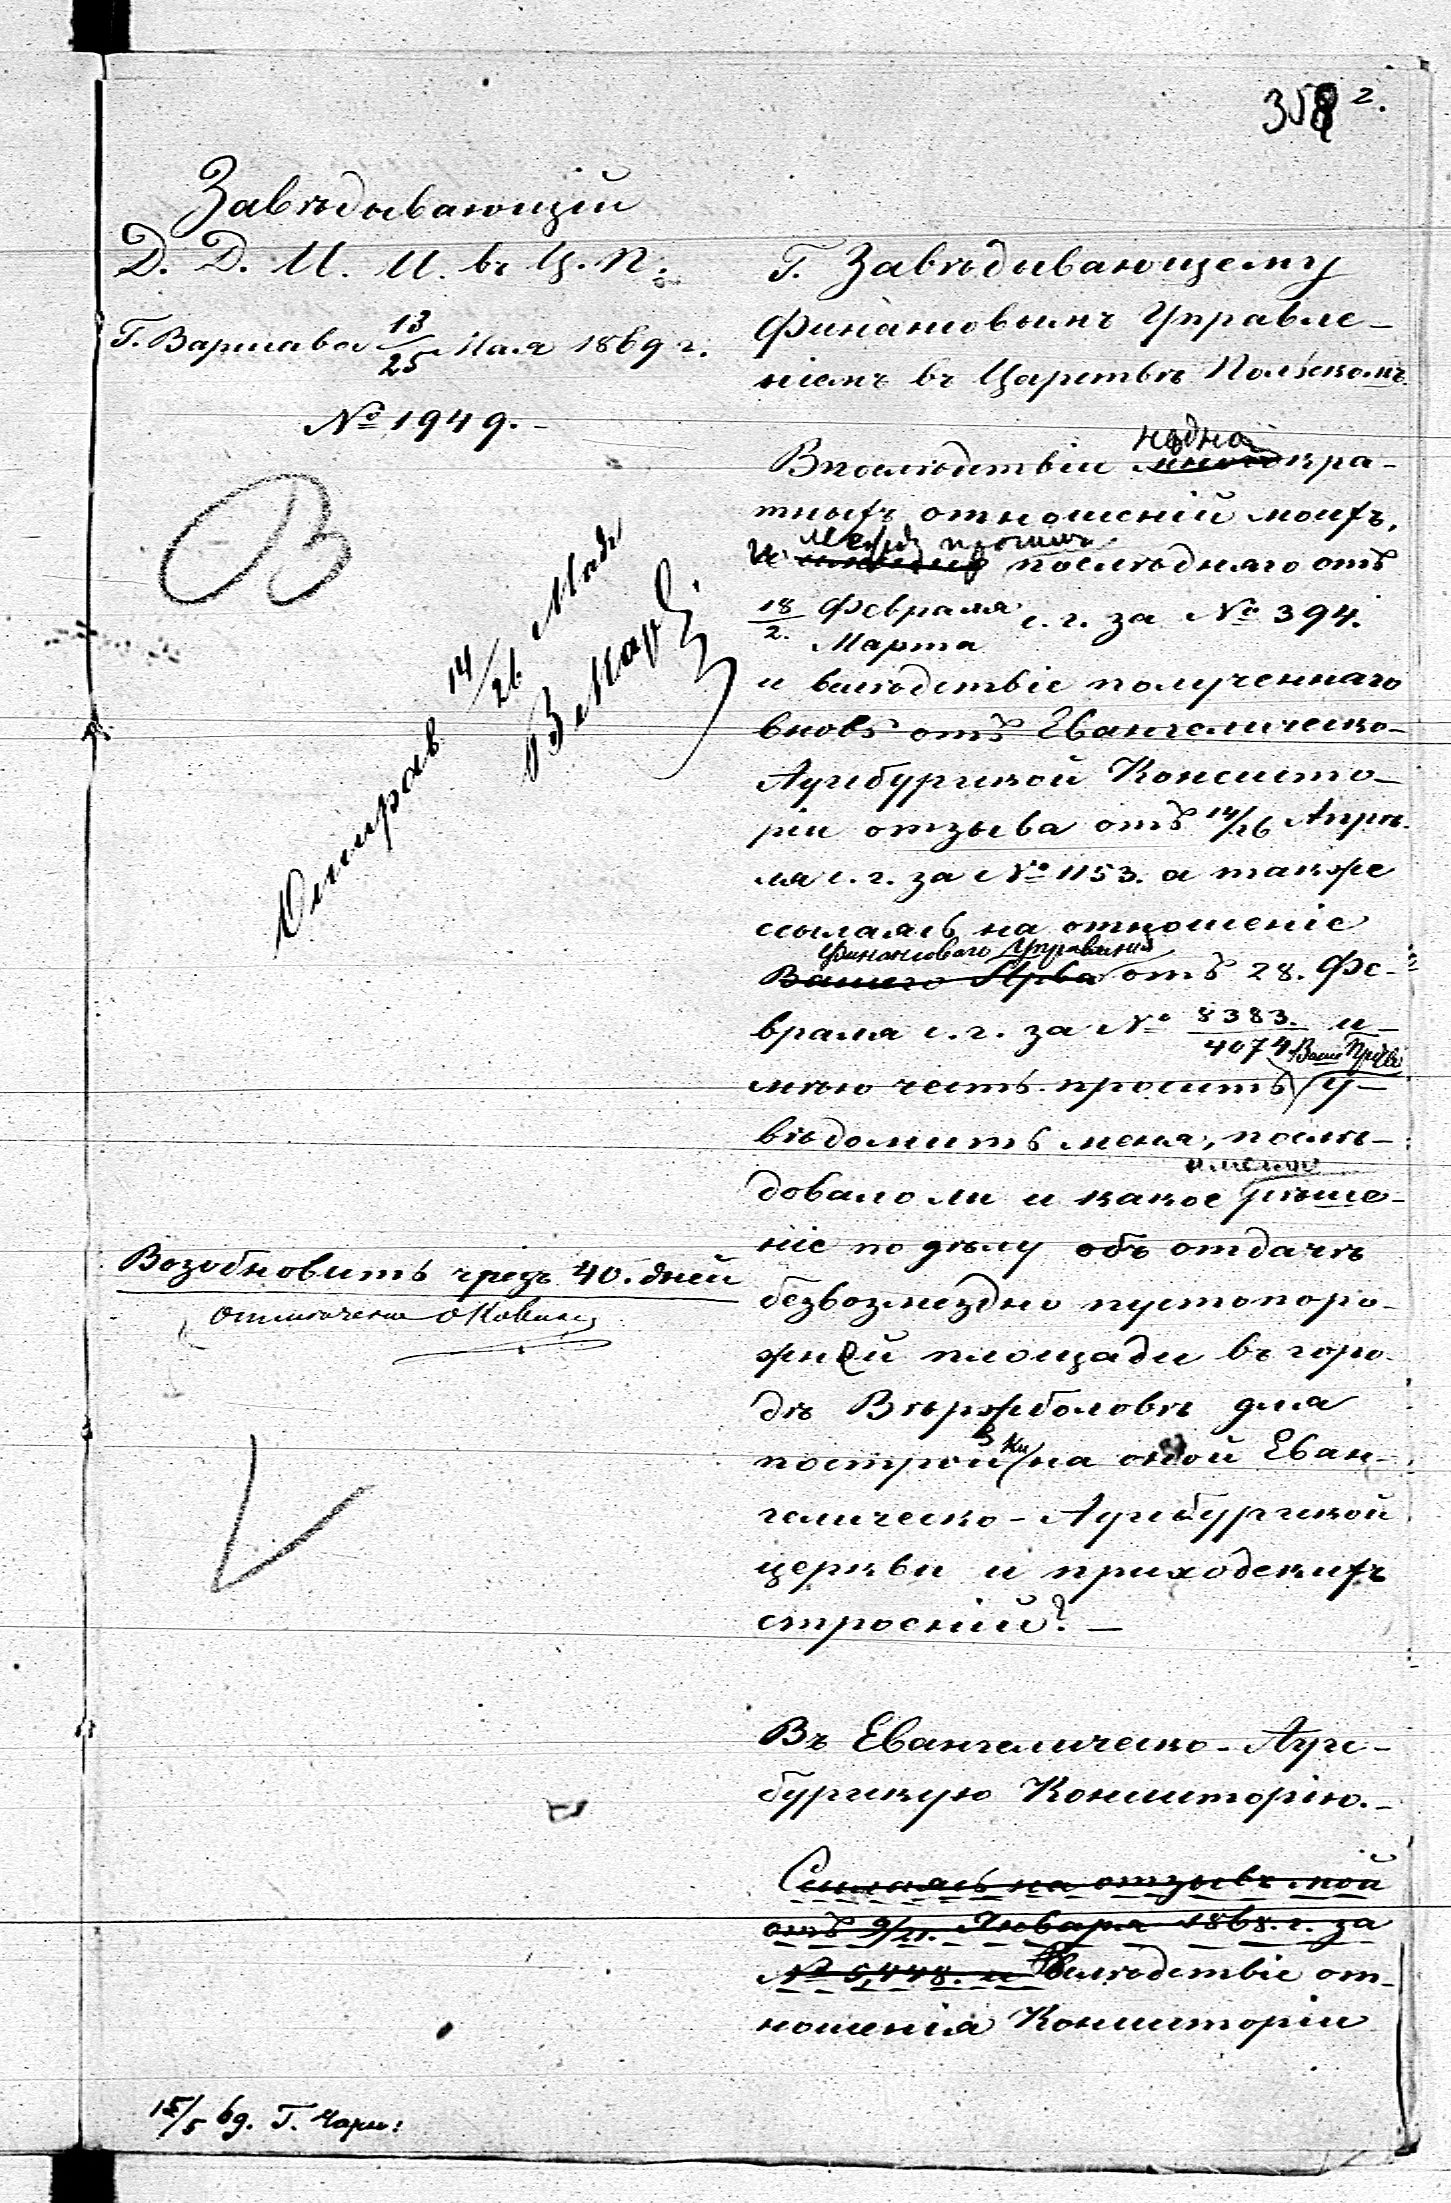 358 2.
Завѣдывающій
Д. Д. И. И. въ Ц. П.
Г. Варшава 13/25 Мая 1869 г.
№ 1949.
Отправ. 14/26 Мая
Возобновить чрезъ 40. дней
отмечено
15/5 69. Г. Чарн:
Г. Завѣдывающему
Финансовымъ Управле-
ніемъ въ Царствѣ Польскомъ.
Впослѣдствіи неодно многокра-
тныхъ отношеній моихъ,
и между прочимъ послѣдняго отъ
18/2. Февраля/Марта с. г. за № 394.
и вслѣдствіе полученнаго
вновь отъ Евангелическо-
Аугсбургской Консисто-
ріи отзыва отъ 14/26 Апрѣ-
ля с. г. за № 1153. а также
ссылаясь на отношеніе
Финансоваго Управленія
Вашего Прва отъ 28. Фе-
враля с. г. за № 8383./4074 и-
мѣю честь просить у-
вѣдомить меня, послѣ-
довало ли и какое именно рѣше-
ніе по дѣлу объ отдачѣ
безвозмездно пустопоро-
жней площади въ горо-
дѣ Вержболовѣ для
постройки на оной Еван-
гелическо-Аугсбургской
церкви и приходскихъ
строеній? —
Въ Евангелическо-Аугс-
бургскую Консисторію.-
Ссылаясь на отзывъ мой
отъ 9/21. Января 1868. г. за
№ 5,448. и Вслѣдствіе от-
ношенія Консисторіи